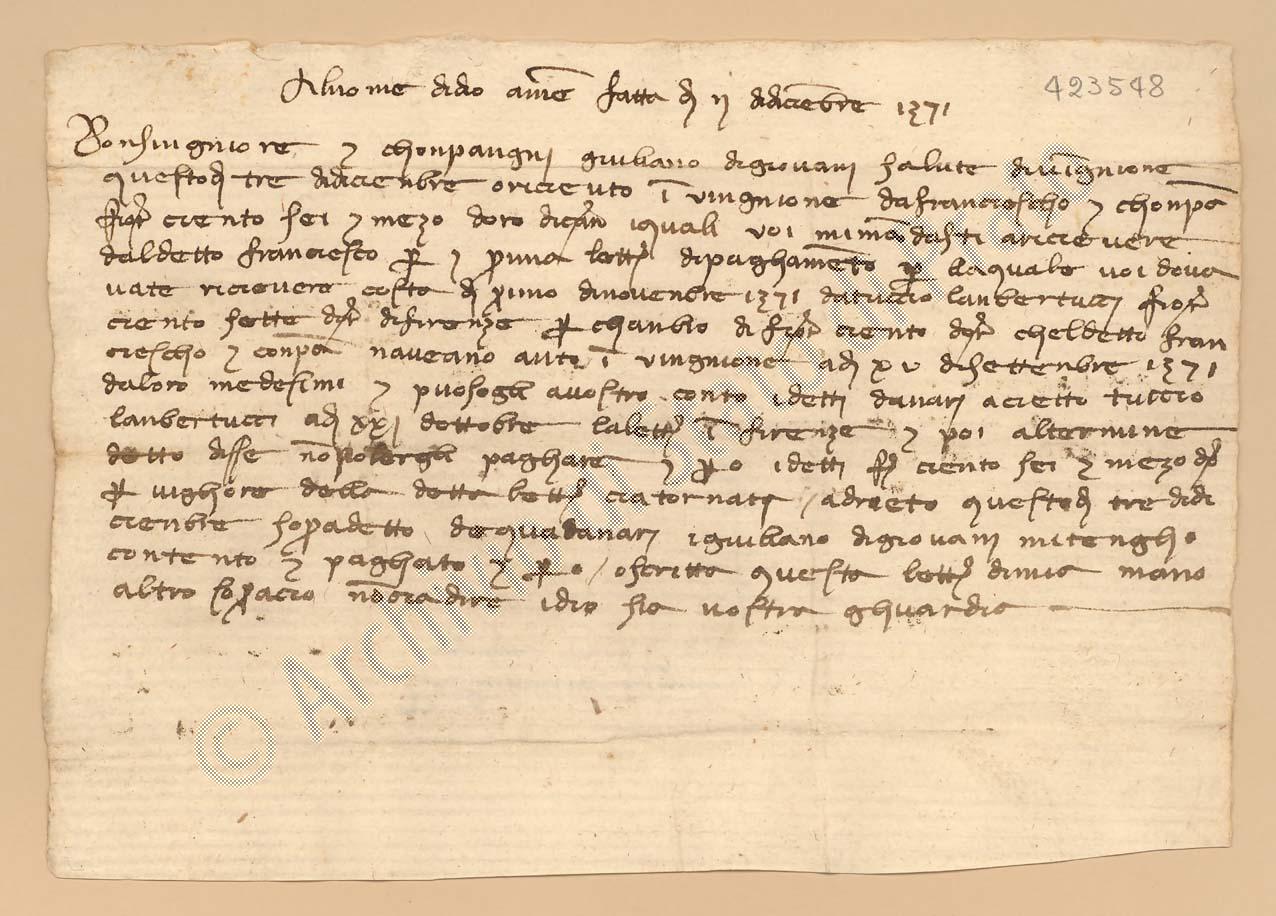 Al nome di dio ame fatta dì ij di diciembre 1371
423548
Bonsingniore e chonpangni giuliano di giovani salute di vingnione
questo dì tre di diciembre o ricievuto i vingnione da franciescho e chonpa
fior ciento sei e mezo d oro di i quali voi mi mandasti a ricievere
dal detto franciesco per j prima letter di paghamento per la quale voi dova
vate ricievere costà dì primo di novenbre 1371 da tuccio lanbertucci fior
ciento sette d di firenze per chanbio di fior ciento d che l detto fran
ciescho e conpa n aveano auti i vingnione a dì xv di settenbre 1371
da loro medesimi e puosogli a vostro conto i detti danari acietto tuccio
lanbertucci a dì xxj d ottobre la letter i firenze e poi al termine
detto disse no paghare e però i detti f ciento sei e mezo d
per vighore della detta letter ci a tornati adrieto questo dì tre di di
ciembre sopradetto de qua danari i giuliano di giovani mi tengho
contento e paghato e però o scritta questa letter di mia mano
altro sopra ciò no ci a dire idio sia vostra ghuardia
© Archivio di Stato di Prato